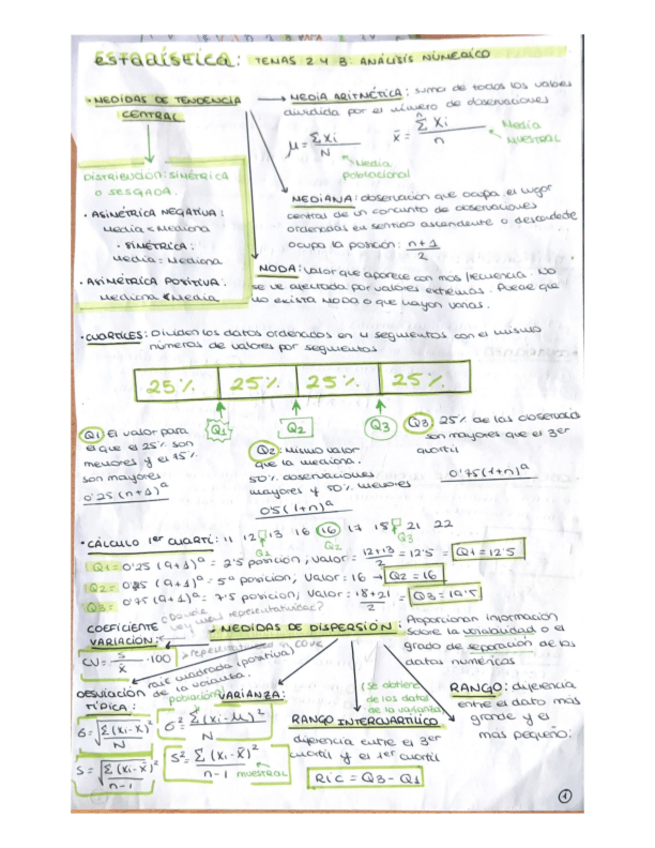 ESTADÍSTICA: TEMAS 2 Y 3: ANÁLISIS NÚMERICO
• MEDIDAS DE TENDENCIA
CENTRAL
→ MEDIA ARITMÉTICA: suma de todos los valores
dividida por el número de observaciones
μ = Σxi / N
Media
poblacional
x̄ = Σxi / n
n
Media
MUESTRAL
DISTRIBUCIÓN: SIMÉTRICA
O SESGADA.
• ASIMÉTRICA NEGATIVA:
Media < Mediana
• SIMÉTRICA:
Media = Mediana
• ASIMÉTRICA POSITIVA:
Mediana < Media
MEDIANA: observación que ocupa el lugar
central de un conjunto de observaciones
ordenadas en sentido ascendente o descendente
ocupa la posición: n+1 / 2
MODA: valor que aparece con más frecuencia. No
se ve afectada por valores extremos. Puede que
no exista MODA o que hayan varias.
• CUARTILES: Dividen los datos ordenados en 4 segmentos con el mismo
números de valores por segmentos
25% 25% 25% 25%
Q1 Q2 Q3
Q1 El valor para
el que el 25% son
menores y el 75%
son mayores
0'25 (n+1)ª
Q2: mismo valor
que la mediana.
50% observaciones
mayores y 50% menores
0'5 (1+n)ª
Q3: 25% de las
son mayores que el 3er
cuartil
0'75(1+n)ª
• CÁLCULO 1er CUARTI: 11 12 13 16 16 17 18 21 22
Q1 Q2 Q3
Q1 = 0'25 (9+1)ª = 2'5 posición; valor = 12+13 / 2 = 12'5 = Q1 = 12'5
Q2 = (9+1)ª = 5ª posición; valor: 16 → Q2 = 16
Q3 = 0'75 (9+1)ª = 7'5 posición; valor: 18+21 / 2 = Q3 = 19'5
COEFICIENTE
VARIACIÓN:
CV = s / x̄ · 100
• MEDIDAS DE DISPERSIÓN: Proporcionan información
sobre la variabilidad o el
grado de separación de los
datos numéricos
raíz cuadrada (positiva)
de la varianza.
DESVIACIÓN
TÍPICA:
σ = √Σ(xi - x̄)² / N
S = √Σ(xi - x̄)² / n-1
población
VARIANZA:
σ² = Σ(xi - μ)² / N
S² = Σ(xi - x̄)² / n-1
MUESTRAL
(se obtiene
de los datos
de la varianza)
RANGO INTERCUARTÍLICO
diferencia entre el 3er
cuartil y el 1er cuartil
RIC = Q3 - Q1
RANGO: diferencia
entre el dato más
grande y el
más pequeño.
1